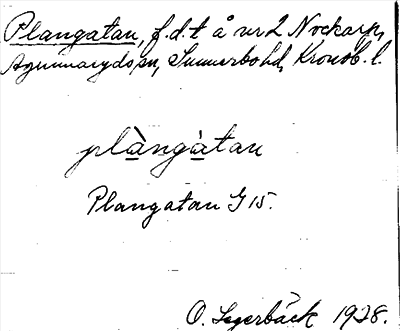 Plangatan, f.d.t å nr 2 Nockarp,
Agunnarydssn, Sunnerbo hd, Kronob. l.
plàngàtan
Plangatan G 15.
O. Lagerbäck 1928.